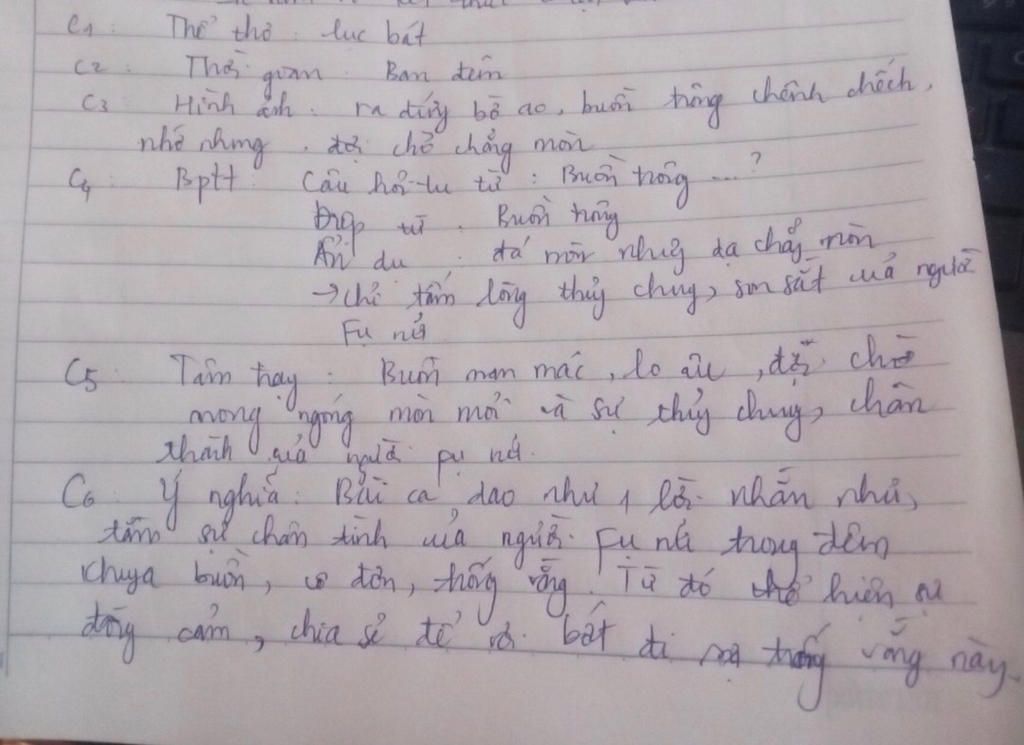 C1: Thể thơ: lục bát
C2: Thời gian: Ban đêm
C3: Hình ảnh: ra đứng bờ ao, buồn trông chênh chếch,
nhớ nhưng, đợi chờ chẳng mòn
C4: Bptt: Câu hỏi tu từ: Buồn trông ...?
Điệp từ: Buồn trông
Ẩn dụ: đá mòn nhưng dạ chẳng mòn
→ chỉ tấm lòng thủy chung, son sắt của người
Fụ nữ
C5: Tâm trạng: Buồn man mác, lo âu, đợi chờ
mong ngóng mòn mỏi và sự thủy chung, chân
thành của người pụ nữ.
C6: Ý nghĩa: Bài ca dao như 1 lời nhắn nhủ,
tâm sự chân tình của người Fụ nữ trong đêm
khuya buồn, cô đơn, trống vắng. Từ đó thể hiện sự
đồng cảm, chia sẻ để vơi bớt đi sự trống vắng này.